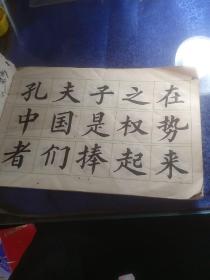 孔夫子之在
中国是权势
者们捧起来